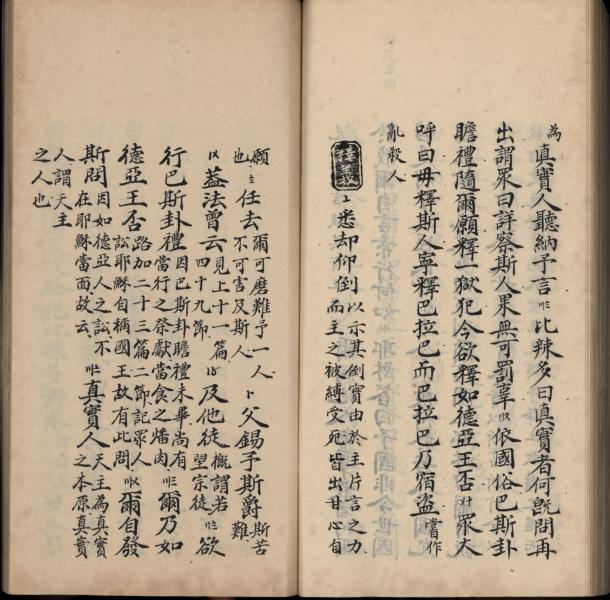 為真實人聽納予言比辣多曰真實者何既問再
出謂眾曰詳察斯人果無可罰辜依國俗巴斯卦
瞻禮隨爾願釋一獄犯今欲釋如德亞王否眾大
呼曰毋釋斯人寧釋巴拉巴而巴拉巴乃宿盜嘗作
亂殺人
悉却仰倒以示其倒實由於主片言之力而主之被縛受死皆出甘心自
願也任去爾可磨難予一人不可害及斯人父錫予斯爵斯苦難
蓋法曾云見上十一篇四十九節及他徒概謂若望宗徒欲
行巴斯卦禮因巴斯卦瞻禮未畢尚有當行之祭獻當食之燔肉爾乃如
德亞王否路加二十三篇二節記眾人訟耶穌自稱國王故有此問爾自發
斯問因如德亞人之訟不在耶穌當面故云真實人天主為真實人之本原真實
人謂天主
之人也